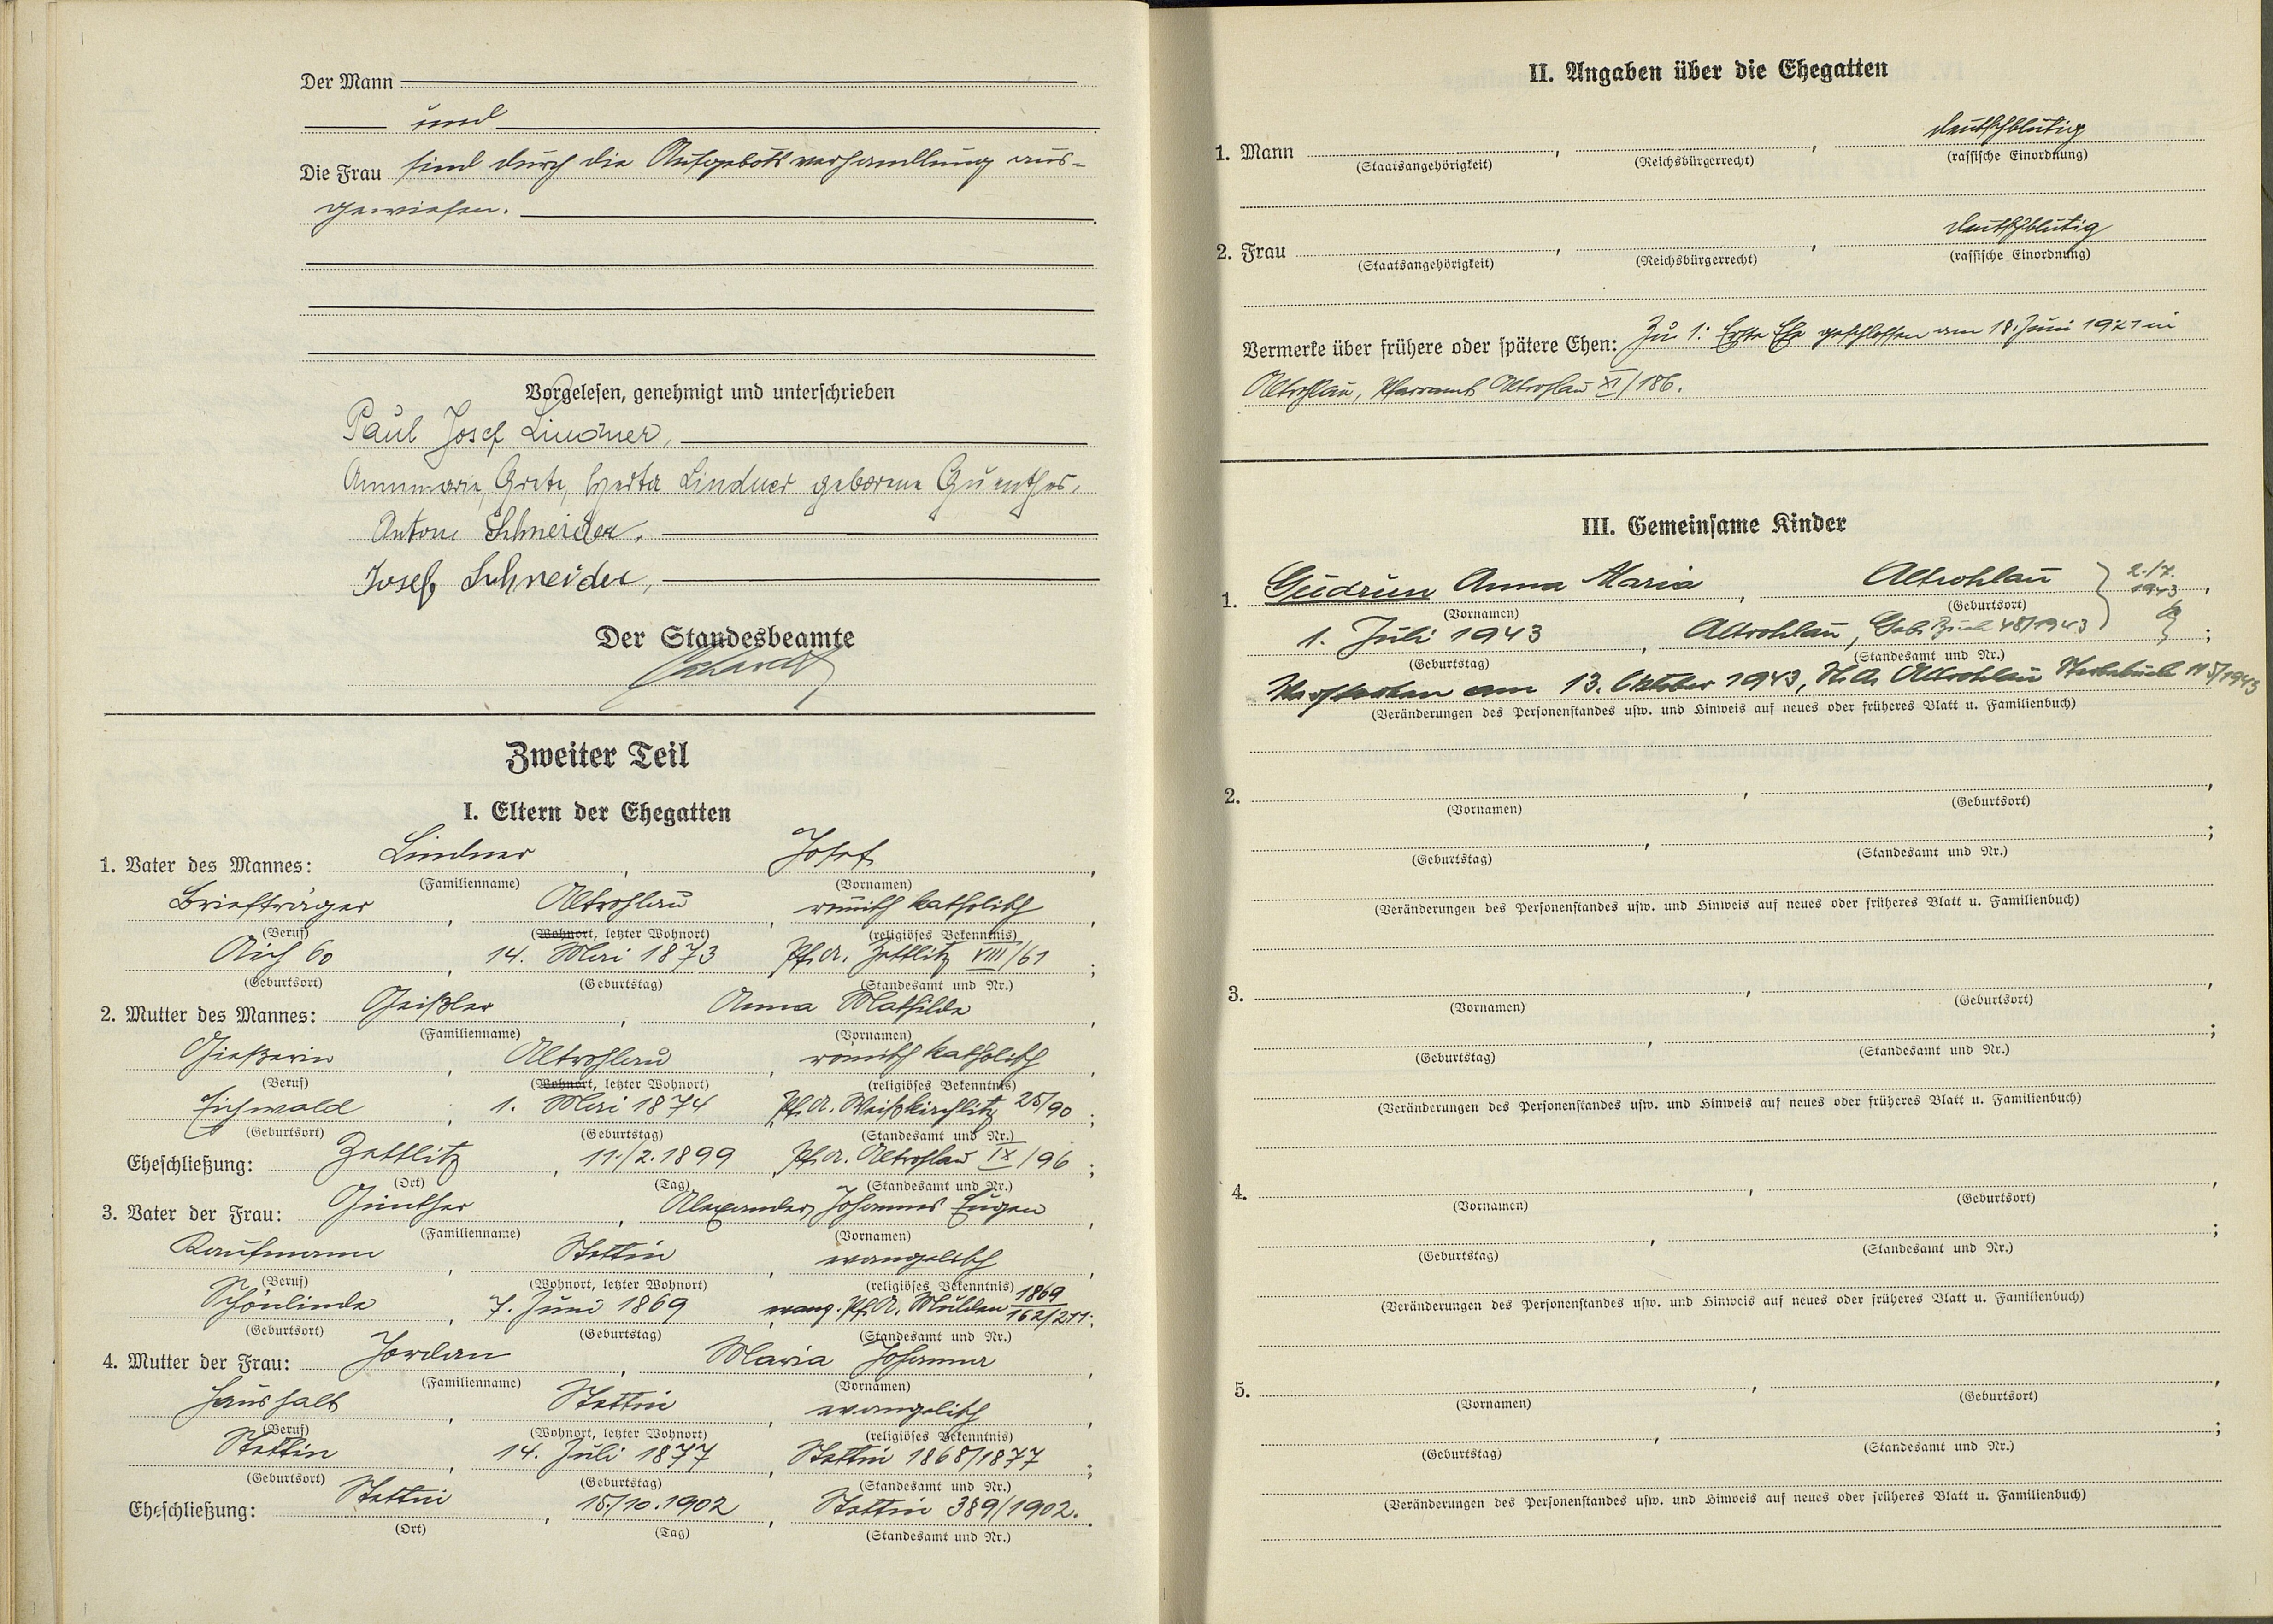 Der Mann
und
Die Frau sind durch die Aufgebotsverhandlung aus-
gewiesen.
Vorgelesen, genehmigt und unterschrieben
Paul Josef Lindner,
Annmarie, Grete, Herta Lindner geborene Guenther.
Anton Schneider.
Josef Schneider,
Der Standesbeamte
Zweiter Teil
I. Eltern der Ehegatten
1. Vater des Mannes: Lindner, Josef,
(Familienname) (Vornamen)
Briefträger, Altrohlau, römisch katholisch,
(Beruf) (Wohnort, letzter Wohnort) (religiöses Bekenntnis)
Aich 60, 14. Mai 1873 Pf.A. Zettlitz VIII/61;
(Geburtsort) (Geburtstag) (Standesamt und Nr.)
2. Mutter des Mannes: Geißler, Anna Mathilde,
(Familienname) (Vornamen)
Gießerin, Altrohlau, römisch katholisch,
(Beruf) (Wohnort, letzter Wohnort) (religiöses Bekenntnis)
Eichwald, 1. Mai 1874 Pf.A. Weißkirchlitz 25/90;
(Geburtsort) (Geburtstag) (Standesamt und Nr.)
Eheschließung: Zettlitz, 11./2.1899 Pf.A. Altrohlau IX/96;
(Ort) (Tag) (Standesamt und Nr.)
3. Vater der Frau: Günther, Alexander Johannes Eugen,
(Familienname) (Vornamen)
Kaufmann, Stettin, evangelisch,
(Beruf) (Wohnort, letzter Wohnort) (religiöses Bekenntnis)
Schönlinde, 7. Juni 1869, evang. Pf.A. Mülsen 1869 162/211;
(Geburtsort) (Geburtstag) (Standesamt und Nr.)
4. Mutter der Frau: Jordan, Maria Johanna,
(Familienname) (Vornamen)
Haushalt, Stettin, evangelisch,
(Beruf) (Wohnort, letzter Wohnort) (religiöses Bekenntnis)
Stettin, 14. Juli 1877, Stettin 1868/1877;
(Geburtsort) (Geburtstag) (Standesamt und Nr.)
Eheschließung: Stettin, 18./10.1902, Stettin 389/1902.
(Ort) (Tag) (Standesamt und Nr.)
II. Angaben über die Ehegatten
1. Mann , , deutschblütig
(Staatsangehörigkeit) (Reichsbürgerrecht) (rassische Einordnung)
2. Frau , , deutschblütig
(Staatsangehörigkeit) (Reichsbürgerrecht) (rassische Einordnung)
Vermerke über frühere oder spätere Ehen: Zu 1: Erste Ehe geschlossen am 18. Juni 1921 in
Altrohlau, Pfarramt Altrohlau XI/186.
III. Gemeinsame Kinder
1. Gudrun Anna Maria, Altrohlau } 2./7. 1943,
(Vornamen) (Geburtsort)
1. Juli 1943, Altrohlau, Geb. Buch 48/1943;
(Geburtstag) (Standesamt und Nr.)
Verstorben am 13. Oktober 1943, St.A. Altrohlau Sterbebuch 115/1943
(Veränderungen des Personenstandes usw. und Hinweis auf neues oder früheres Blatt u. Familienbuch)
2. , ,
(Vornamen) (Geburtsort)
, ;
(Geburtstag) (Standesamt und Nr.)
(Veränderungen des Personenstandes usw. und Hinweis auf neues oder früheres Blatt u. Familienbuch)
3. , ,
(Vornamen) (Geburtsort)
, ;
(Geburtstag) (Standesamt und Nr.)
(Veränderungen des Personenstandes usw. und Hinweis auf neues oder früheres Blatt u. Familienbuch)
4. , ,
(Vornamen) (Geburtsort)
, ;
(Geburtstag) (Standesamt und Nr.)
(Veränderungen des Personenstandes usw. und Hinweis auf neues oder früheres Blatt u. Familienbuch)
5. , ,
(Vornamen) (Geburtsort)
, ;
(Geburtstag) (Standesamt und Nr.)
(Veränderungen des Personenstandes usw. und Hinweis auf neues oder früheres Blatt u. Familienbuch)